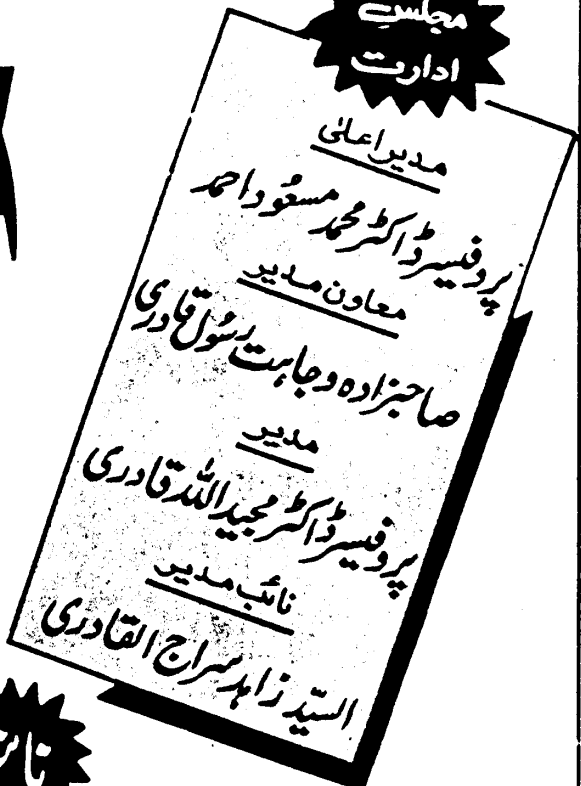 مجلسِ
ادارت
مدیر اعلیٰ
پروفیسر ڈاکٹر محمد مسعود احمد
معاون مدیر
صاحبزادہ وجاہت رسُول قادری
مدیر
پروفیسر ڈاکٹر مجید اللہ قادری
نائب مدیر
السیّد زاہد سراج القادری